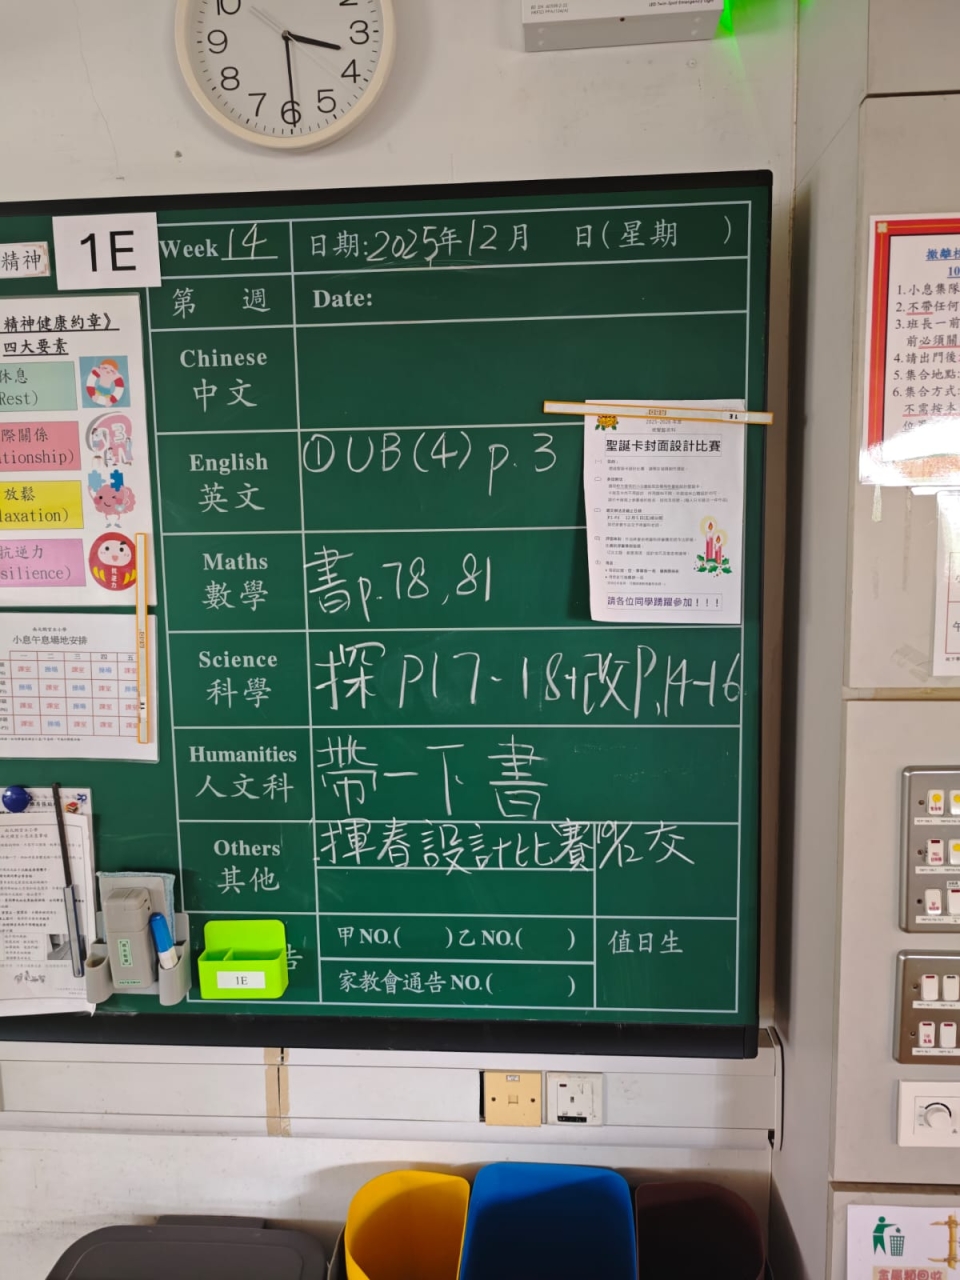 10
2
9
3
8
4
7
6
5
精神
1E
Week 14
日期:2025年12月 日(星期 )
第 週
Date:
精神健康約章》
四大要素
休息
Rest)
際關係
ationship)
放鬆
laxation)
抗逆力
silience)
小息午息場地安排
一 二 三 四 五
Chinese
中文
English
英文
①UB(4) p.3
Maths
數學
書p.78,81
Science
科學
探 P17-18+改P.14-16
Humanities
人文科
帶一下書
Others
其他
揮春設計比賽 19/12交
告
甲NO.( )乙NO.( )
值日生
家教會通告NO.( )
1E
聖誕卡封面設計比賽
請各位同學踴躍參加！！！
1.小息集隊
2.不帶任何
3.班長一前
前必須關
4.請出門後
5.集合地點
6.集合方式
不需按本